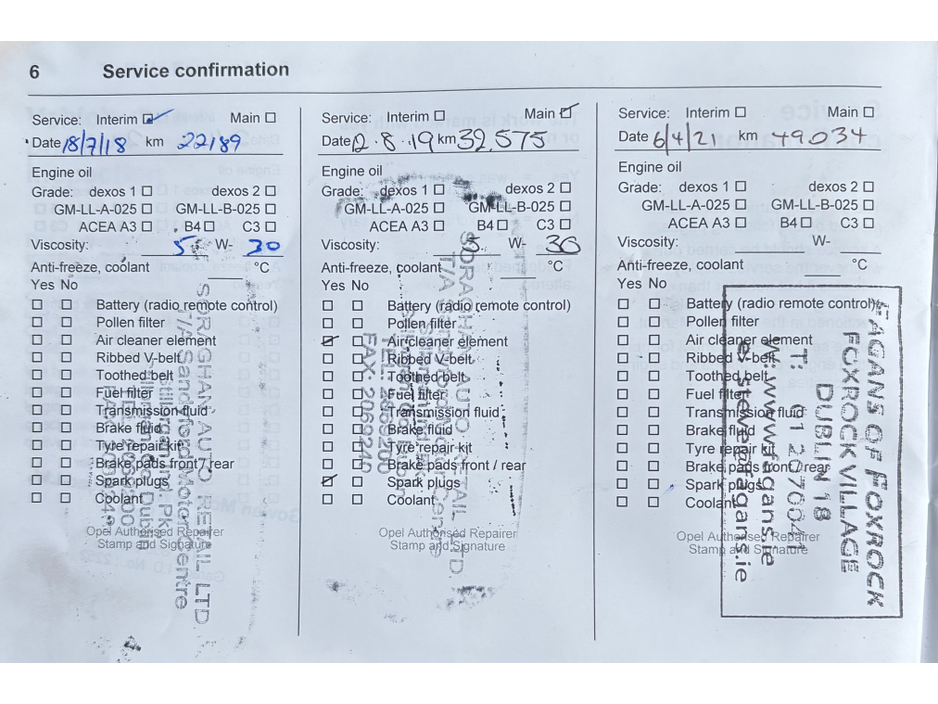 6 Service confirmation
Service: Interim Main
Date 18/7/18 km 22189
Engine oil
Grade: dexos 1 dexos 2
GM-LL-A-025 GM-LL-B-025
ACEA A3 B4 C3
Viscosity: 5 W- 30
Anti-freeze, coolant °C
Yes No
Battery (radio remote control)
Pollen filter
Air cleaner element
Ribbed V-belt
Toothed belt
Fuel filter
Transmission fluid
Brake fluid
Tyre repair kit
Brake pads front / rear
Spark plugs
Coolant
Opel Authorised Repairer
Stamp and Signature
SORAGHAN AUTO RETAIL LTD
T/A Sandyford Motor Centre
Service: Interim Main
Date 12.8.19 km 32,575
Engine oil
Grade: dexos 1 dexos 2
GM-LL-A-025 GM-LL-B-025
ACEA A3 B4 C3
Viscosity: 5 W- 30
Anti-freeze, coolant °C
Yes No
Battery (radio remote control)
Pollen filter
Air cleaner element
Ribbed V-belt
Toothed belt
Fuel filter
Transmission fluid
Brake fluid
Tyre repair kit
Brake pads front / rear
Spark plugs
Coolant
Opel Authorised Repairer
Stamp and Signature
SORAGHAN AUTO RETAIL LTD.
FAX: 2069240
Service: Interim Main
Date 6/4/21 km 49034
Engine oil
Grade: dexos 1 dexos 2
GM-LL-A-025 GM-LL-B-025
ACEA A3 B4 C3
Viscosity: W-
Anti-freeze, coolant °C
Yes No
Battery (radio remote control)
Pollen filter
Air cleaner element
Ribbed V-belt
Toothed belt
Fuel filter
Transmission fluid
Brake fluid
Tyre repair kit
Brake pads front / rear
Spark plugs
Coolant
Opel Authorised Repairer
Stamp and Signature
FAGANS OF FOXROCK
FOXROCK VILLAGE
DUBLIN 18
T: 01 2076041
w: www.fagans.ie
e: stewart@fagans.ie